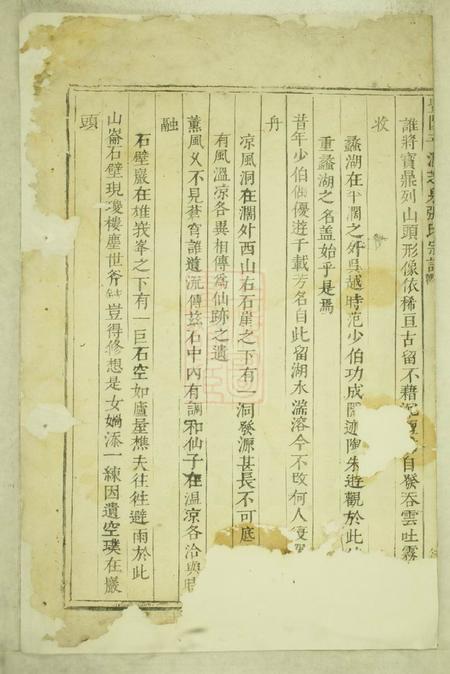 誰將寶鼎列山頭形像依稀亘古留不藉沉自發吞雲吐霧
收
蠡湖在平濶之外吳越時范少伯功成隱迹陶朱遊觀於此
重蠡湖之名盖始乎是焉
昔年少伯個優遊千載芳名自此留湖水瀠溶今不改何人
舟
凉風洞在濶外西山右石崖之下有一洞發源甚長不可底
有風溫凉各異相傳為仙跡之遺
薰風久不見蒼穹誰道流傳兹石中內有調和仙子在溫凉各洽與
融
石壁巖在雄峩峯之下有一巨石空如廬屋樵夫往往避雨於此
山崙石壁現瓊樓塵世斧豈得修想是女媧添一練因遺空璞在巖
頭